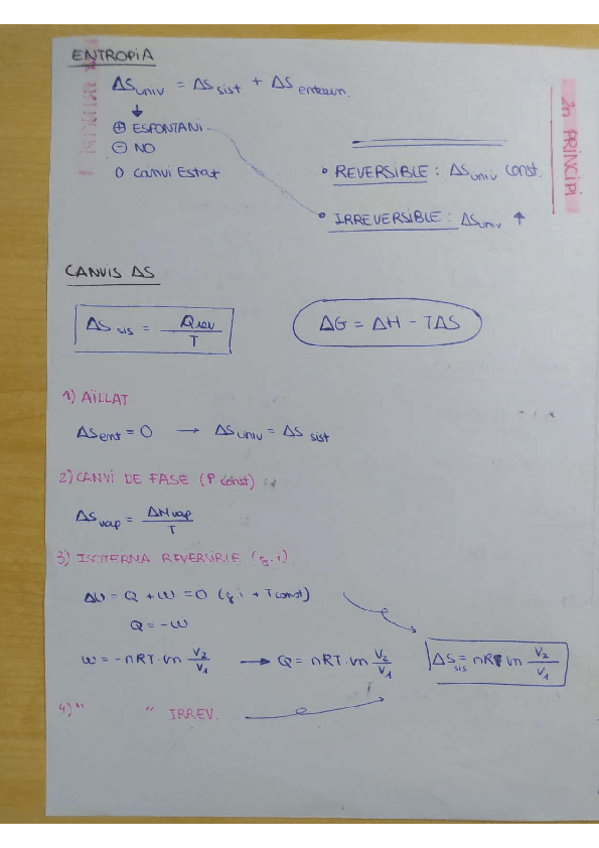 ENTROPIA
ΔS univ = ΔS sist + ΔS entorn.
⊕ ESPONTANI
⊖ NO
0 canvi Estat
2n PRINCIPI
• REVERSIBLE: ΔS univ const.
• IRREVERSIBLE: ΔS univ ↑
CANVIS ΔS
ΔS sis = Qrev / T
ΔG = ΔH - TΔS
1) AÏLLAT
ΔS ent = 0 → ΔS univ = ΔS sist
2) CANVI DE FASE (P const)
ΔS vap = ΔH vap / T
3) ISOTERMA REVERSIBLE (g.i)
ΔU = Q + W = 0 (g i + T const)
Q = -W
W = -nRT·ln V2/V1 → Q = nRT·ln V2/V1
ΔS sis = nR ln V2/V1
4) " " IRREV.